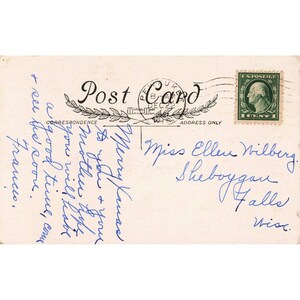 Post Card
CORRESPONDENCE
ADDRESS ONLY
1 CENT 1
Merry Xmas
to you & your
Mother hope
you will have
a good time, come
& see us soon.
Francis.
Miss Ellen Wilberg.
Sheboygan
Falls
Wisc.